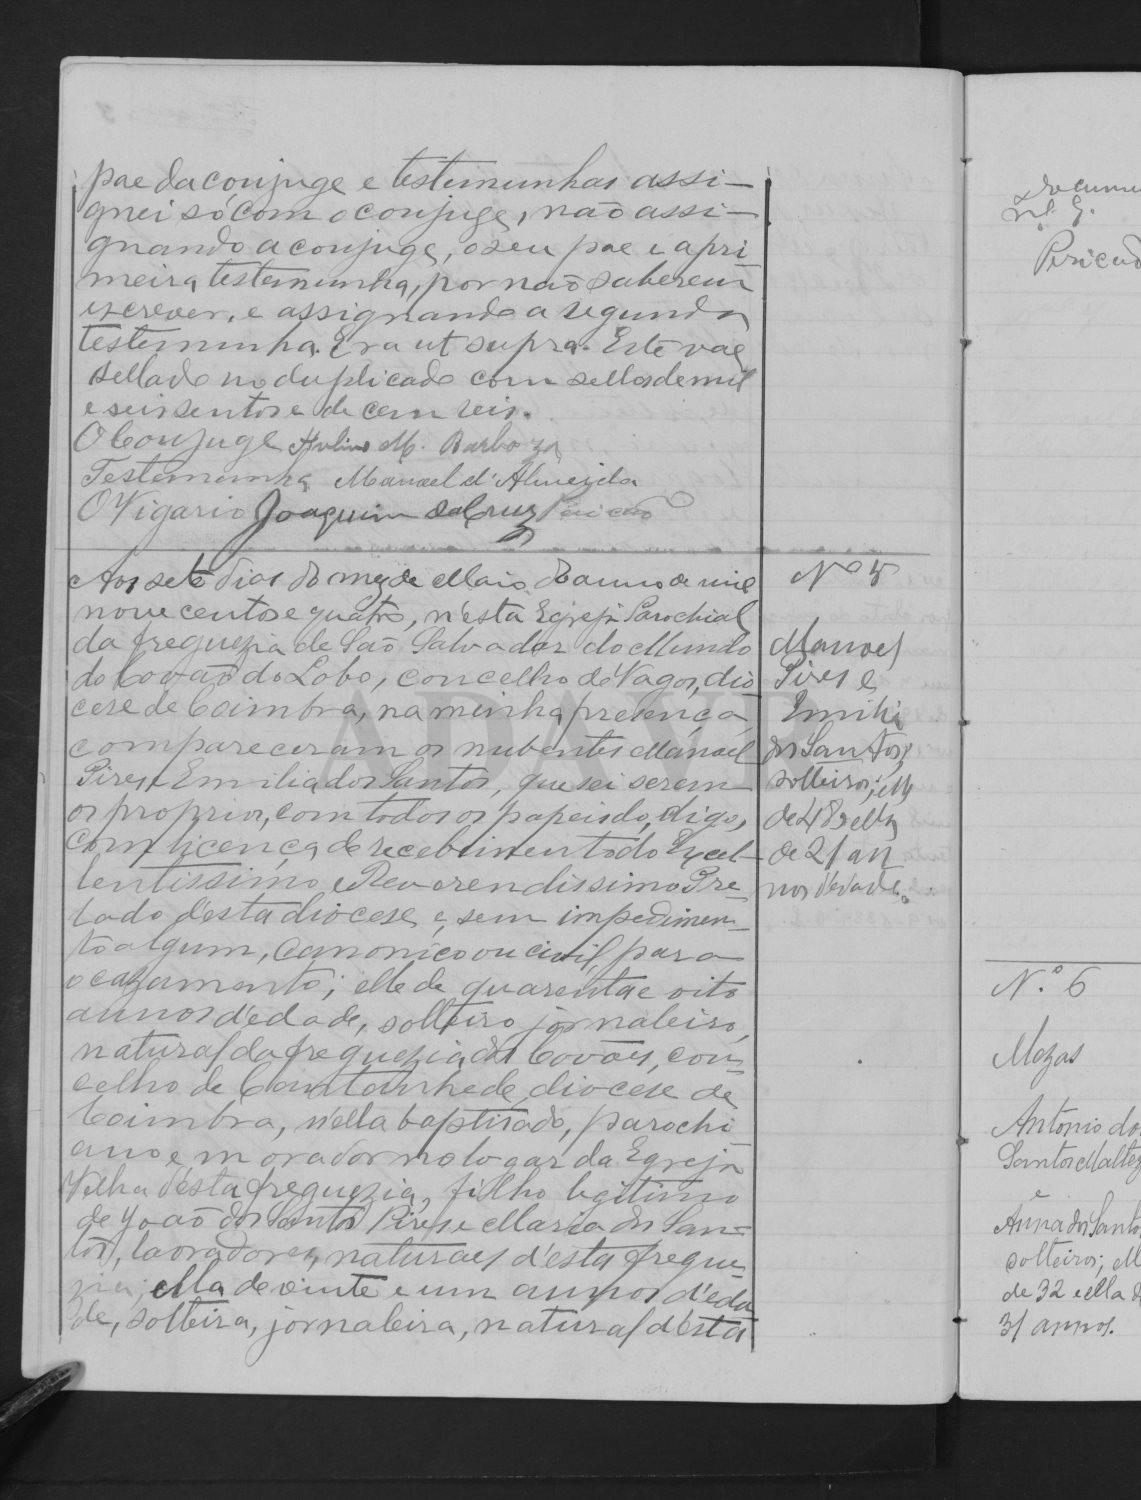 pae da conjuge e testemunhas assi-
gnei só com o conjuge, não assi-
gnando a conjuge, o seu pae e a pri-
meira testemunha, por não saberem
escrever, e assignando a segunda
testemunha. Era ut supra. Este vae
sellado no duplicado com sellos de mil
e seissentos e de cem reis.
O Conjuge M. Barboza
Testemunha Manoel d'Almeida
O Vigario Joaquim da Cruz Pericão
Aos sete dias do mez de Maio do anno de mil
nove centos e quatro, n'esta Egreja Parochial
da freguezia de São Salvador do Mundo
do Covão do Lobo, concelho de Vagos, dio
cese de Coimbra, na minha presença
compareceram os nubentes Manoel
Pires e Emilia dos Santos, que sei serem
os proprios, com todos os papeis do, digo,
com licença de recebimento do Excel-
lentissimo e Reverendissimo Pre-
lado d'esta diocese e, sem impedimen-
to algum, canonico ou civil, para
o cazamento; elle de quarenta e oito
annos d'edade, solteiro, jornaleiro,
natural da freguezia dos Covões, con-
celho de Cantanhede, diocese de
Coimbra, n'ella baptisado, parochi
ano e morador no logar da Egreja
Velha d'esta freguezia, filho legitimo
de João dos Santos Pires e Maria dos San-
tos, lavradores, naturaes d'esta fregue-
zia; ella de vinte e um annos d'eda
de, solteira, jornaleira, natural d'esta
Nº 5
Manoel
Pires e
Emilia
dos Santos,
solteiros; elle
de 48 e ella
de 21 an
nos d'edade.
ADAVR
nº 8.
Pericão
N.º 6
Mozas
Antonio dos
Santos Maltez
e
Anna dos Santos
solteiros; el
de 32 e ella d
31 annos.